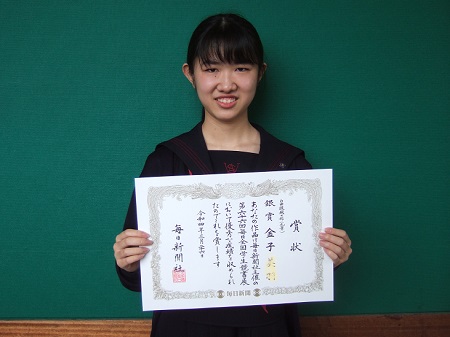 賞状
銀賞 金子
あなたの作品は毎日新聞社主催の
第六十六回毎日全国学生競書展
において優秀な成績を収められ
たのでこれを賞します
令和四年三月
毎日新聞社
毎日新聞